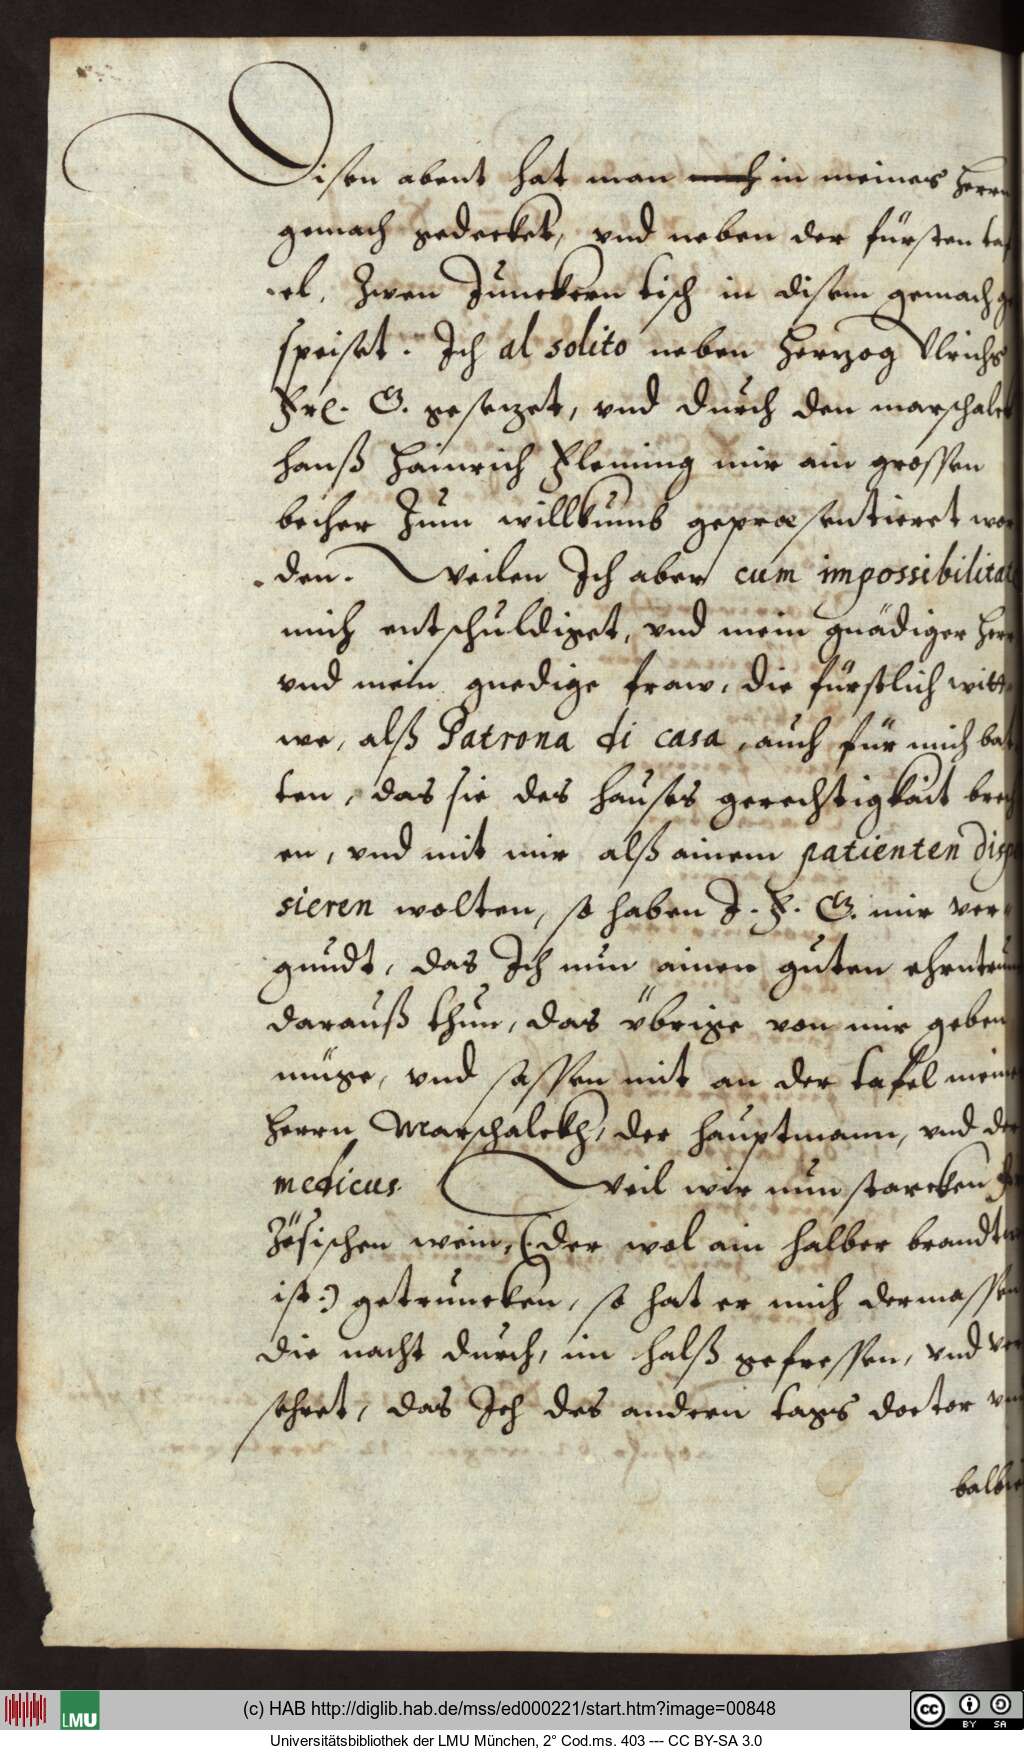 Disen abent hat man auch in meines herrn
gemach gedecket, vnd neben der fürsten taf
el, Zwen Junckern tisch in disem gemach ge
speiset. Ich al solito neben Herzog Vlrichs
Frl. G. gesezet, vnd durch den marschalck
hanß Hainrich Fleming mir ain grossen
becher Zum willkumb gepraesentieret wor
den. Weilen Ich aber cum impossibilitate
mich entschuldiget, vnd mein gnädiger herr
vnd mein gnedige fraw, die fürstlich witt
we, alß Patrona di casa, auch für mich bat
ten, das sie des hauses gerechtigkait brech
en, vnd mit mir alß ainem patienten dispe
sieren wolten, so haben I. F. G. mir ver
gundt, das Ich nun ainen guten ehrntrunk
darauß thun, das übrige von mir geben
müge, vnd sassen mit an der tafel meines
herrn Marschalckh, der hauptmann, vnd der
medicus. Weil wir nun starcken
Zösischen wein, (:der wol ain halber brandtw
ist:) getruncken, so hat er mich dermassen
die nacht durch, im halß gefressen, vnd ver
sehret, das Ich des andern tags doctor vnd
balbie
(c) HAB http://diglib.hab.de/mss/ed000221/start.htm?image=00848
Universitätsbibliothek der LMU München, 2° Cod.ms. 403 --- CC BY-SA 3.0
LMU
cc BY SA